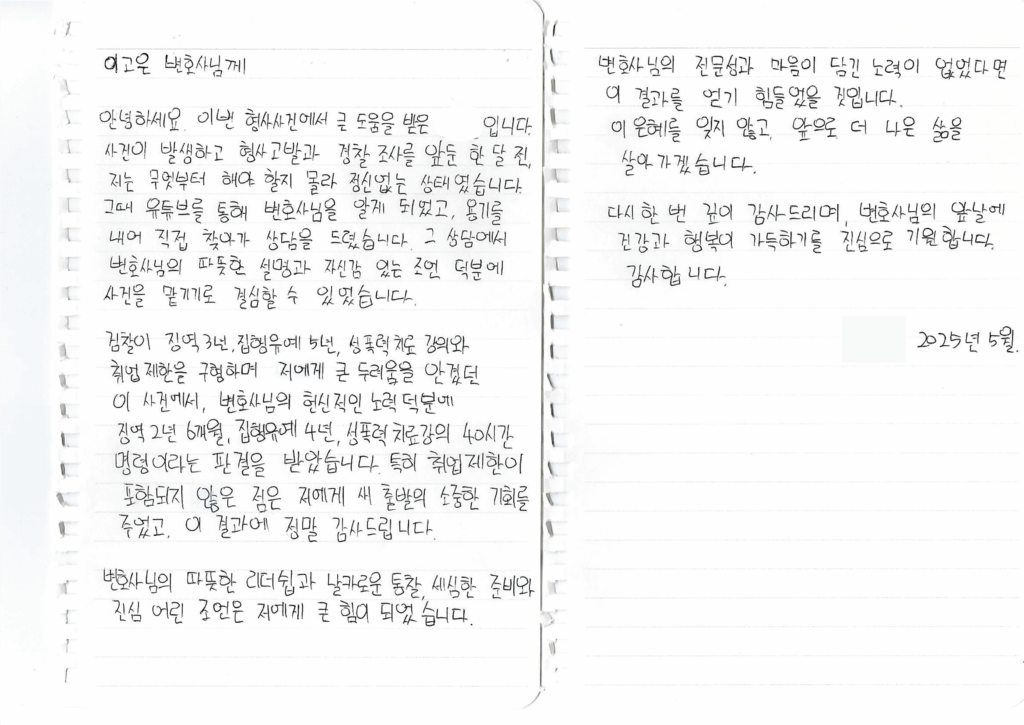 이고은 변호사님께
안녕하세요. 이번 형사사건에서 큰 도움을 받은 입니다.
사건이 발생하고 형사고발과 경찰 조사를 앞둔 한 달 전,
저는 무엇부터 해야 할지 몰라 정신없는 상태였습니다.
그때 유튜브를 통해 변호사님을 알게 되었고, 용기를
내어 직접 찾아가 상담을 드렸습니다. 그 상담에서
변호사님의 따뜻한 설명과 자신감 있는 조언 덕분에
사건을 맡기기로 결심할 수 있었습니다.
검찰이 징역 3년, 집형유예 5년, 성폭력 치료 강의와
취업 제한을 구형하며 저에게 큰 두려움을 안겼던
이 사건에서, 변호사님의 헌신적인 노력 덕분에
징역 2년 6개월, 집형유예 4년, 성폭력 치료강의 40시간
명령이라는 판결을 받았습니다. 특히 취업 제한이
포함되지 않은 점은 저에게 새 출발의 소중한 기회를
주었고, 이 결과에 정말 감사드립니다.
변호사님의 따뜻한 리더쉽과 날카로운 통찰, 세심한 준비와
진심 어린 조언은 저에게 큰 힘이 되었습니다.
변호사님의 전문성과 마음이 담긴 노력이 없었다면
이 결과를 얻기 힘들었을 것입니다.
이 은혜를 잊지 않고, 앞으로 더 나은 삶을
살아가겠습니다.
다시 한 번 깊이 감사드리며, 변호사님의 앞날에
건강과 행복이 가득하기를 진심으로 기원합니다.
감사합니다.
2025년 5월.